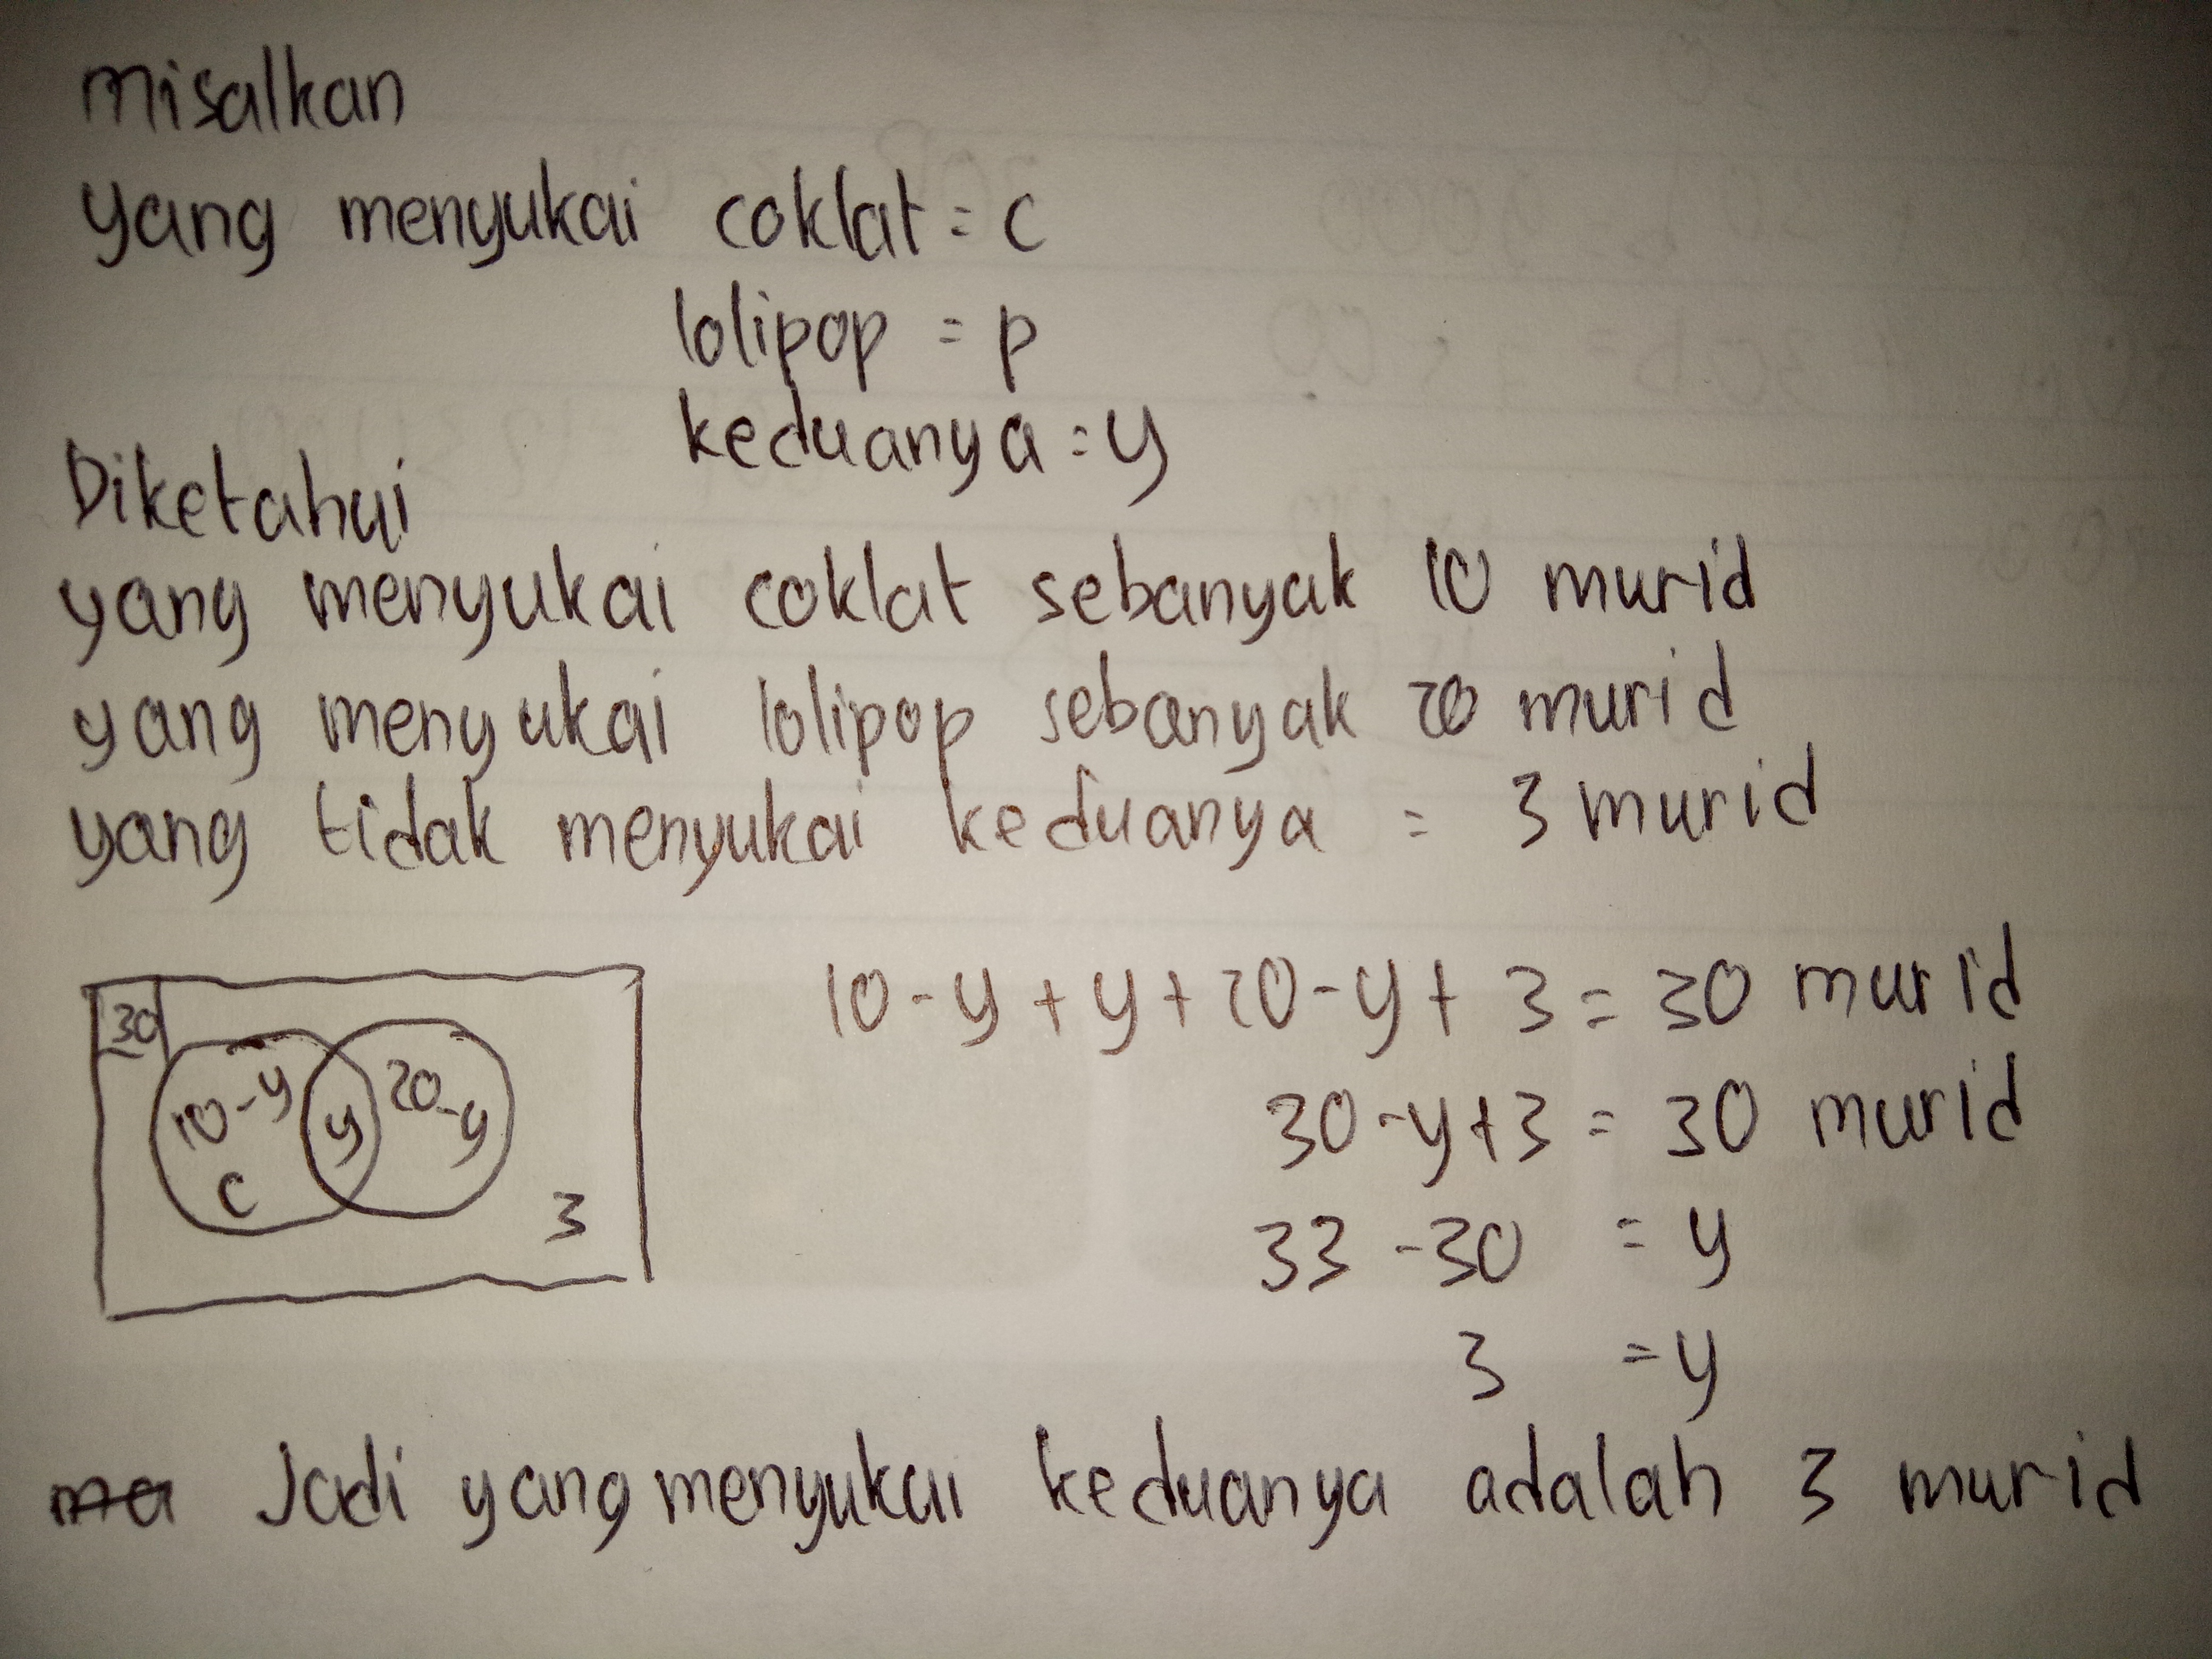 misalkan
yang menyukai coklat = c
lolipop = p
keduanya = y
Diketahui
yang menyukai coklat sebanyak 10 murid
yang menyukai lolipop sebanyak 20 murid
yang tidak menyukai keduanya = 3 murid
30
10-y y 20-y
c
3
10-y+y+20-y+3=30 murid
30-y+3=30 murid
33-30 = y
3 = y
ma Jadi yang menyukai keduanya adalah 3 murid